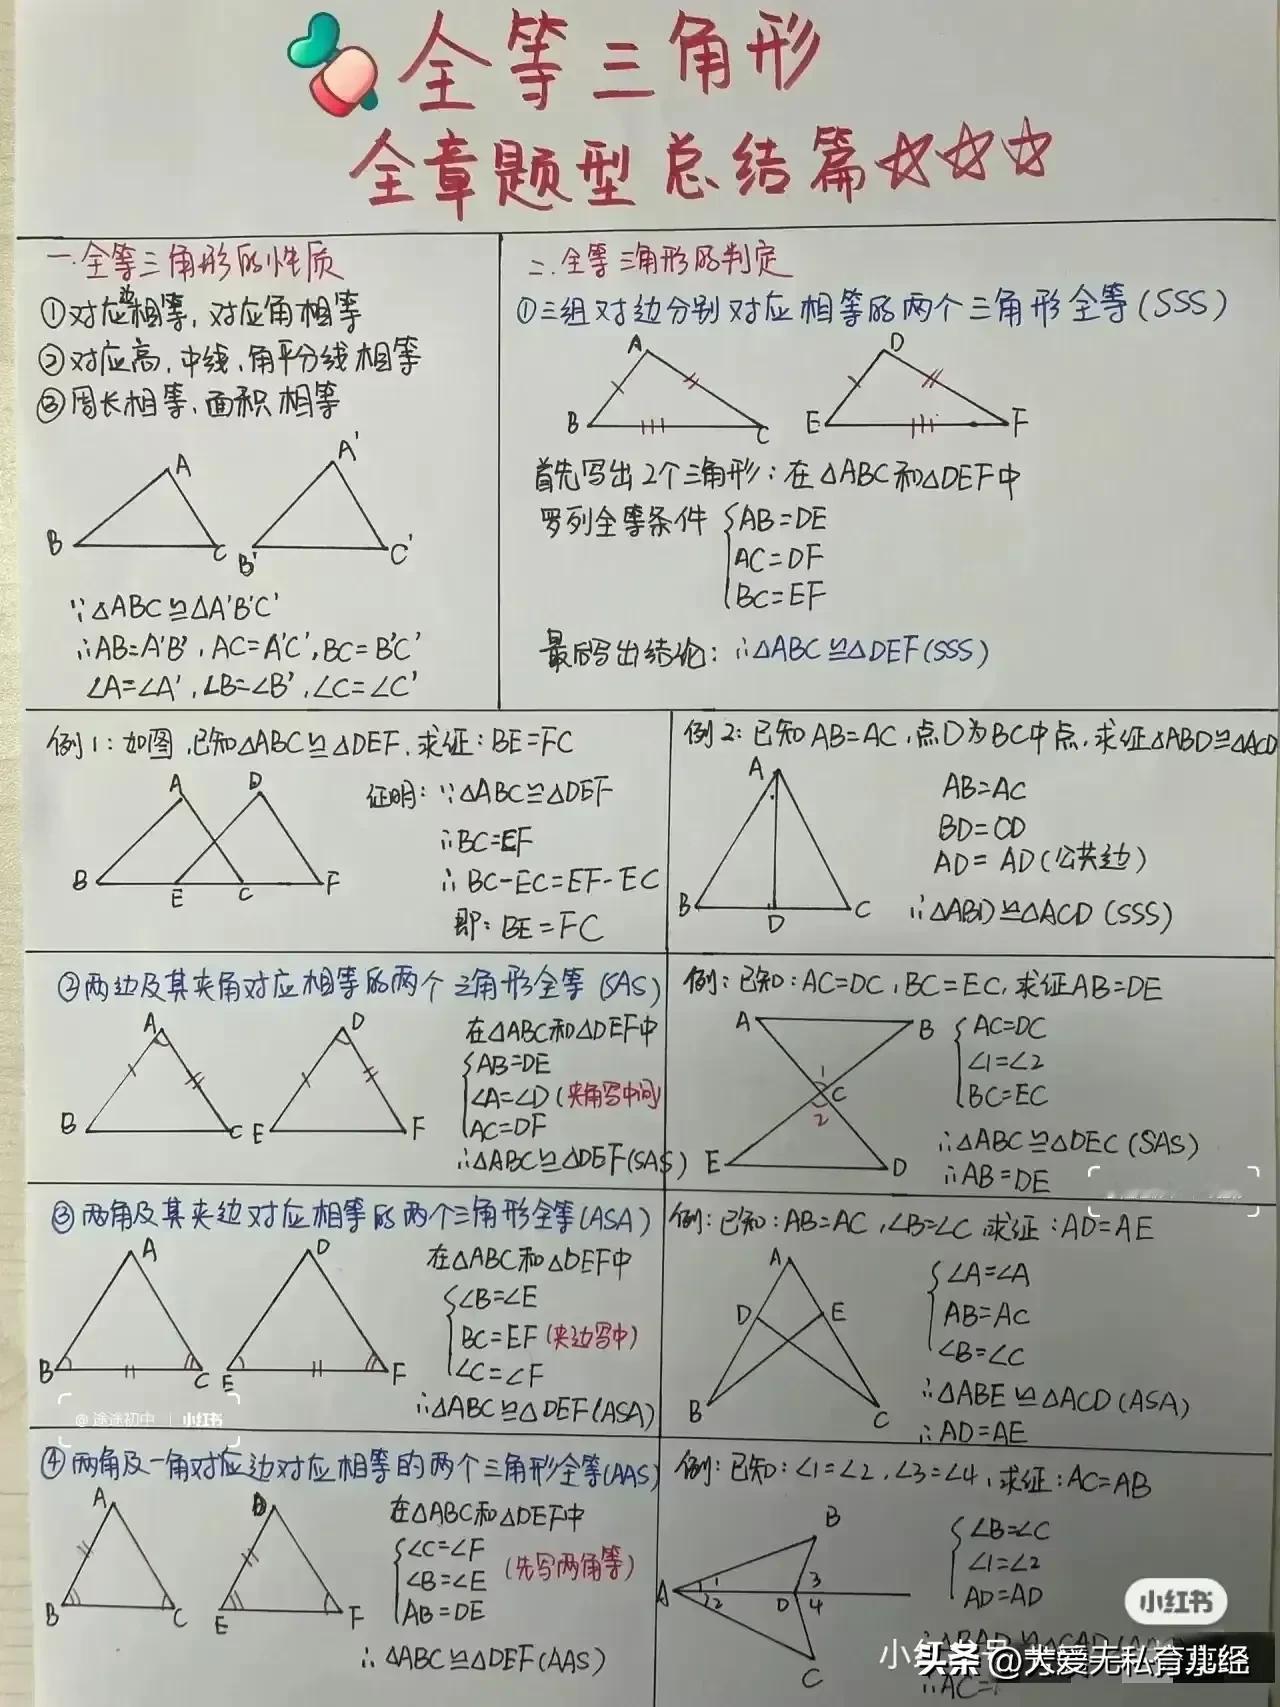 全等三角形
全章题型总结篇☆☆☆
一.全等三角形的性质
①对应边相等,对应角相等
②对应高,中线,角平分线相等
③周长相等,面积相等
A
B
C
A'
B'
C'
∵△ABC≌△A'B'C'
∴AB=A'B',AC=A'C',BC=B'C'
∠A=∠A',∠B=∠B',∠C=∠C'
二.全等三角形的判定
①三组对边分别对应相等的两个三角形全等(SSS)
A
B
C
D
E
F
首先写出2个三角形:在△ABC和△DEF中
罗列全等条件{AB=DE
AC=DF
BC=EF
最后写出结论:∴△ABC≌△DEF(SSS)
例1:如图,已知△ABC≌△DEF,求证:BE=FC
A
D
B
E
C
F
证明:∵△ABC≌△DEF
∴BC=EF
∴BC-EC=EF-EC
即:BE=FC
例2:已知AB=AC,点D为BC中点,求证△ABD≌△ACD
A
B
D
C
AB=AC
BD=CD
AD=AD(公共边)
∴△ABD≌△ACD(SSS)
②两边及其夹角对应相等的两个三角形全等(SAS)
A
B
C
D
E
F
在△ABC和△DEF中
{AB=DE
∠A=∠D(夹角写中间)
AC=DF
∴△ABC≌△DEF(SAS)
例:已知:AC=DC,BC=EC,求证AB=DE
A
B
1
C
2
E
D
{AC=DC
∠1=∠2
BC=EC
∴△ABC≌△DEC(SAS)
∴AB=DE
③两角及其夹边对应相等的两个三角形全等(ASA)
A
B
C
D
E
F
在△ABC和△DEF中
{∠B=∠E
BC=EF(夹边写中)
∠C=∠F
∴△ABC≌△DEF(ASA)
@途途初中 | 小红书
例:已知:AB=AC,∠B=∠C,求证:AD=AE
A
D
E
B
C
{∠A=∠A
AB=AC
∠B=∠C
∴△ABE≌△ACD(ASA)
∴AD=AE
④两角及一角对应边对应相等的两个三角形全等(AAS)
A
B
C
D
E
F
在△ABC和△DEF中
{∠C=∠F
∠B=∠E
AB=DE
(先写两角等)
∴△ABC≌△DEF(AAS)
例:已知:∠1=∠2,∠3=∠4,求证:AC=AB
B
A
1
2
D
3
4
C
{∠B=∠C
∠1=∠2
AD=AD
小红书
∴△BAD≌△CAD
∴AC=
小红书号
头条 @大爱无私育儿经